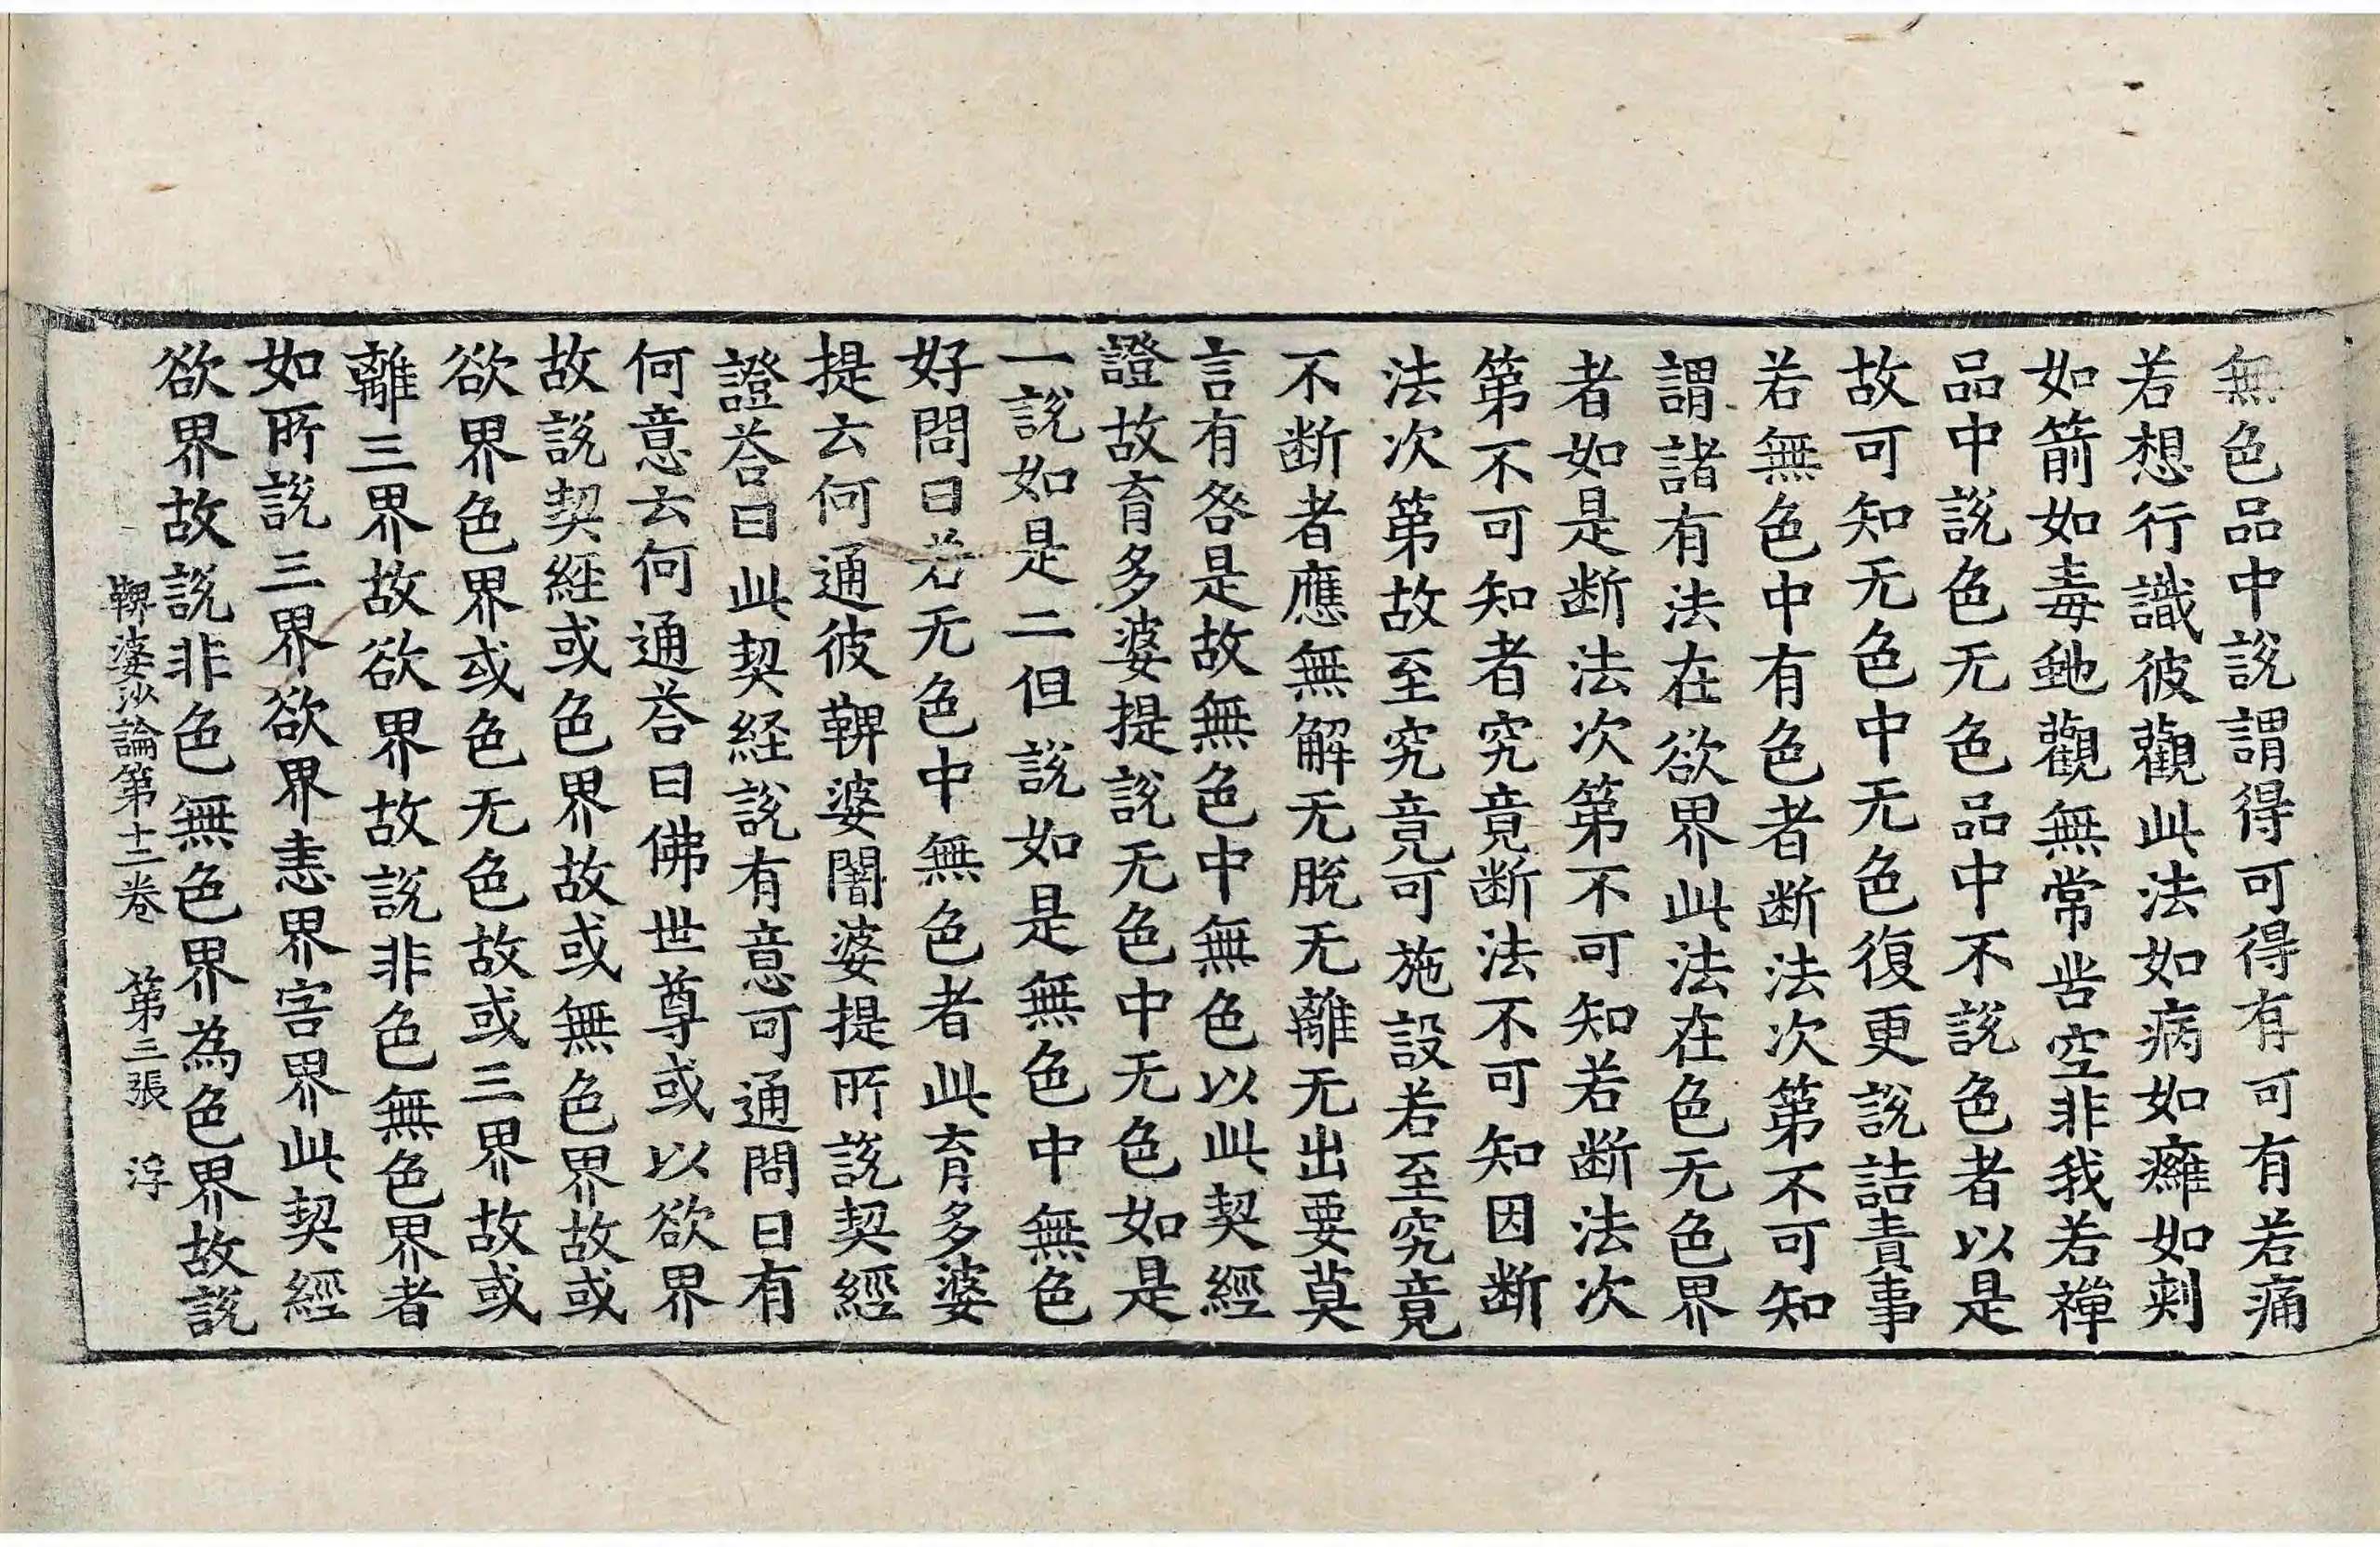 無色品中說謂得可得有可有若痛
若想行識彼觀此法如病如癰如刺
如箭如毒虵觀無常苦空非我若禪
品中說色无色品中不說色者以是
故可知无色中无色復更說詰責事
若無色中有色者断法次第不可知
謂諸有法在欲界此法在色无色界
者如是断法次第不可知若断法次
第不可知者究竟断法不可知因断
法次第故至究竟可施設若至究竟
不断者應無解无脫无離无出要莫
言有咎是故無色中無色以此契經
證故育多婆提說无色中无色如是
一說如是二但說如是無色中無色
好問曰若无色中無色者此育多婆
提云何通彼鞞婆闍婆提所說契經
證荅曰此契経說有意可通問曰有
何意云何通荅曰佛世尊或以欲界
故說契經或色界故或無色界故或
欲界色界或色无色故或三界故或
離三界故欲界故說非色無色界者
如所說三界欲界恚界害界此契經
欲界故說非色無色界為色界故說
鞞婆沙論第十二卷 第三張 浮